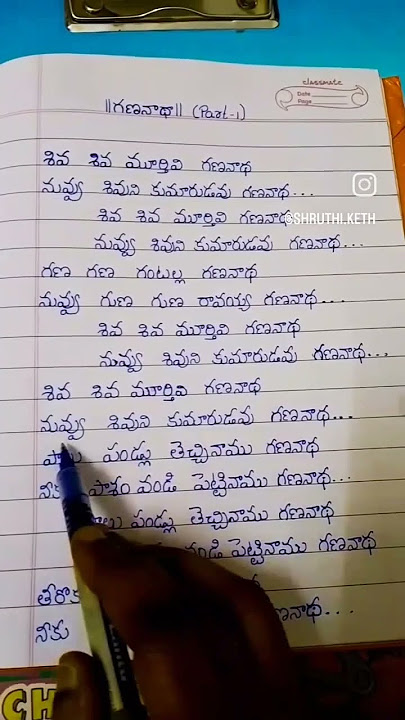 classmate
Date
Page
||గణనాథ|| (Part-1)
శివ శివ మూర్తివి గణనాథ
నువ్వు శివుని కుమారుడవు గణనాథ...
శివ శివ మూర్తివి గణనాథ
@SHRUTHI.KETH
నువ్వు శివుని కుమారుడవు గణనాథ...
గణ గణ గంటల్ల గణనాథ
నువ్వు గుణ గుణ రావయ్య గణనాథ...
శివ శివ మూర్తివి గణనాథ
నువ్వు శివుని కుమారుడవు గణనాథ...
శివ శివ మూర్తివి గణనాథ
నువ్వు శివుని కుమారుడవు గణనాథ...
పండ్లు తెచ్చినాము గణనాథ
పాశం వండి పెట్టినాము గణనాథ...
పండ్లు తెచ్చినాము గణనాథ
వండి పెట్టినాము గణనాథ
నీకు గణనాథ...
CH